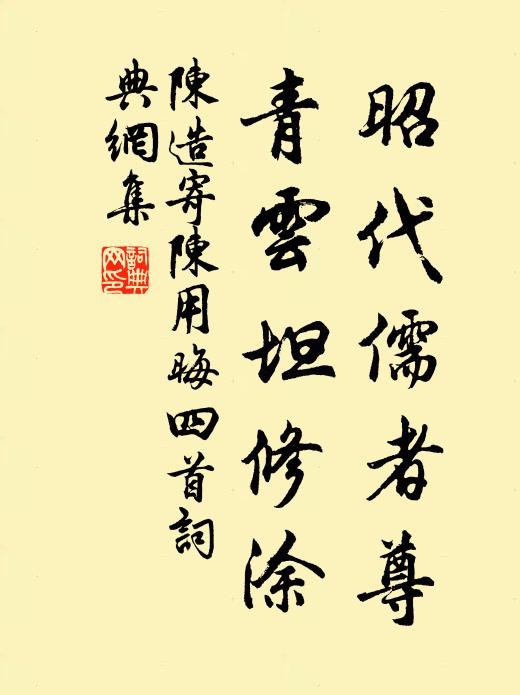 昭代儒者尊
青雲坦修涂
陳造寄陳用晦四首詞
典網集
詞典網印